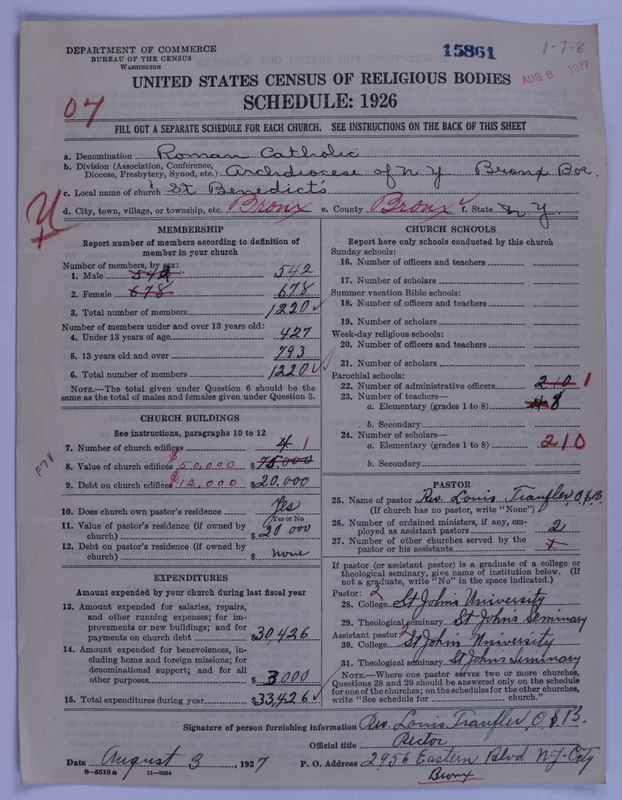 DEPARTMENT OF COMMERCE
BUREAU OF THE CENSUS
WASHINGTON
15861
1-7-8
AUG 6 1927
UNITED STATES CENSUS OF RELIGIOUS BODIES
SCHEDULE: 1926
04
FILL OUT A SEPARATE SCHEDULE FOR EACH CHURCH. SEE INSTRUCTIONS ON THE BACK OF THIS SHEET
a. Denomination Roman Catholic
b. Division (Association, Conference, Diocese, Presbytery, Synod, etc.) Archdiocese of N Y Bronx Bor.
c. Local name of church St Benedict's
d. City, town, village, or township, etc. Bronx e. County Bronx f. State N Y
MEMBERSHIP
Report number of members according to definition of
member in your church
Number of members, by sex:
1. Male 542 542
2. Female 678 678
3. Total number of members 1220
Number of members under and over 13 years old:
4. Under 13 years of age 427
5. 13 years old and over 793
6. Total number of members 1220
NOTE.—The total given under Question 6 should be
same as the total of males and females given under Question 3.
CHURCH BUILDINGS
See instructions, paragraphs 10 to 12
7. Number of church edifices 4 1
8. Value of church edifices $50,000 $75,000
9. Debt on church edifices $12,000 $20,000
10. Does church own pastor's residence Yes
(Yes or No)
11. Value of pastor's residence (if owned by
church) $20 000
12. Debt on pastor's residence (if owned by
church) $ none
EXPENDITURES
Amount expended by your church during last fiscal year
13. Amount expended for salaries, repairs,
and other running expenses; for im-
provements or new buildings; and for
payments on church debt $30,426
14. Amount expended for benevolences, in-
cluding home and foreign missions; for
denominational support; and for all
other purposes $3000
15. Total expenditures during year $33,426
CHURCH SCHOOLS
Report here only schools conducted by this church
Sunday schools:
16. Number of officers and teachers
17. Number of scholars
Summer vacation Bible schools:
18. Number of officers and teachers
19. Number of scholars
Week-day religious schools:
20. Number of officers and teachers
21. Number of scholars
Parochial schools:
22. Number of administrative officers 210 1
23. Number of teachers—
a. Elementary (grades 1 to 8) 8
b. Secondary
24. Number of scholars—
a. Elementary (grades 1 to 8) 210
b. Secondary
PASTOR
25. Name of pastor Rev. Louis Tranfler, O.S.B.
(If church has no pastor, write "None")
26. Number of ordained ministers, if any, em-
ployed as assistant pastors 2
27. Number of other churches served by the
pastor or his assistants
If pastor (or assistant pastor) is a graduate of a college or
theological seminary, give name of institution below. (If
not a graduate, write "No" in the space indicated.)
Pastor:
28. College St Johns University
29. Theological seminary St Johns Seminary
Assistant pastor:
30. College St Johns University
31. Theological seminary St Johns Seminary
NOTE.—Where one pastor serves two or more churches,
Questions 28 and 29 should be answered only on the schedule
for one of the churches; on the schedules for the other churches,
write "See schedule for church."
Signature of person furnishing information Rev. Louis Tranfler, O.S.B.
Official title Rector
Date August 3, 1927 P. O. Address 2956 Eastern Blvd N.Y. City
8—5518 a 11—9054 Bronx